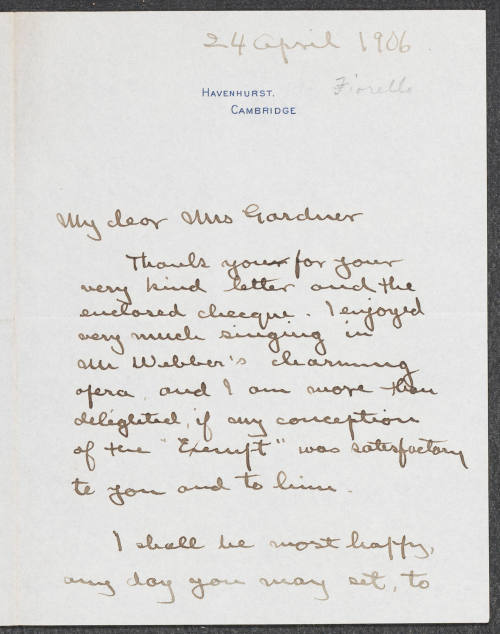 24 April 1906
Fiorello
HAVENHURST.
CAMBRIDGE
My dear Mrs Gardner
Thank your for your
very kind letter and the
enclosed checque. I enjoyed
very much singing in
Mr Webber's charming
opera, and I am more than
delighted, if my conception
of the "Exempt" was satisfactory
to you and to him.
I shall be most happy,
any day you may set, to